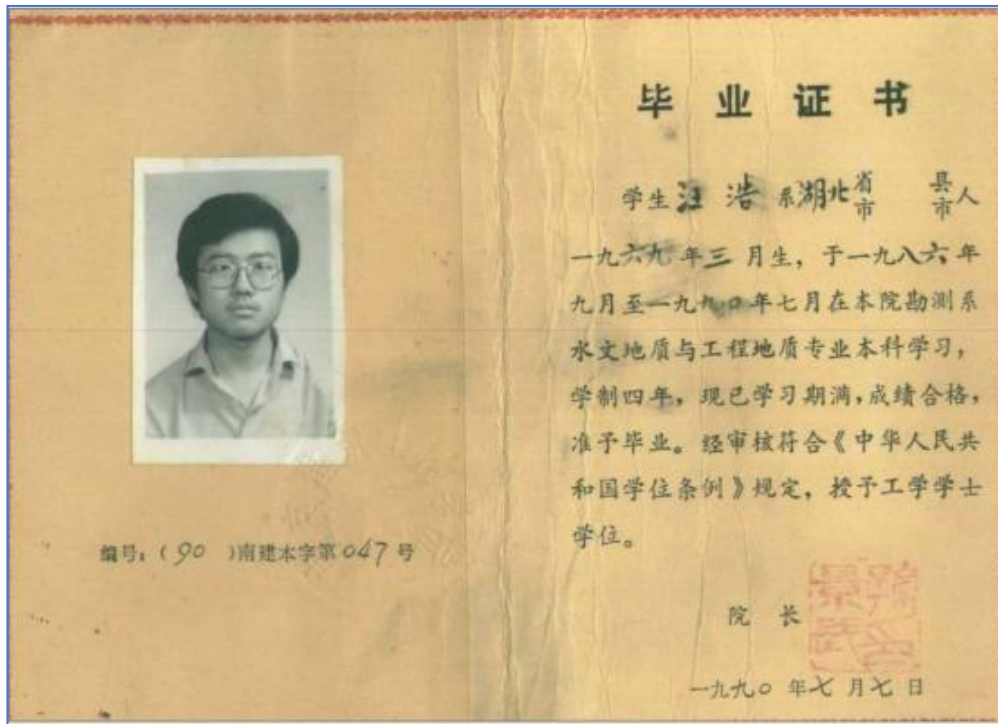 编号：（90 ）南建本字第047号
毕业证书
学生汪浩系湖北省市 县市人
一九六九年三月生，于一九八六年
九月至一九九〇年七月在本院勘测系
水文地质与工程地质专业本科学习，
学制四年，现已学习期满，成绩合格，
准予毕业。经审核符合《中华人民共
和国学位条例》规定，授予工学学士
学位。
院长
一九九〇年七月七日